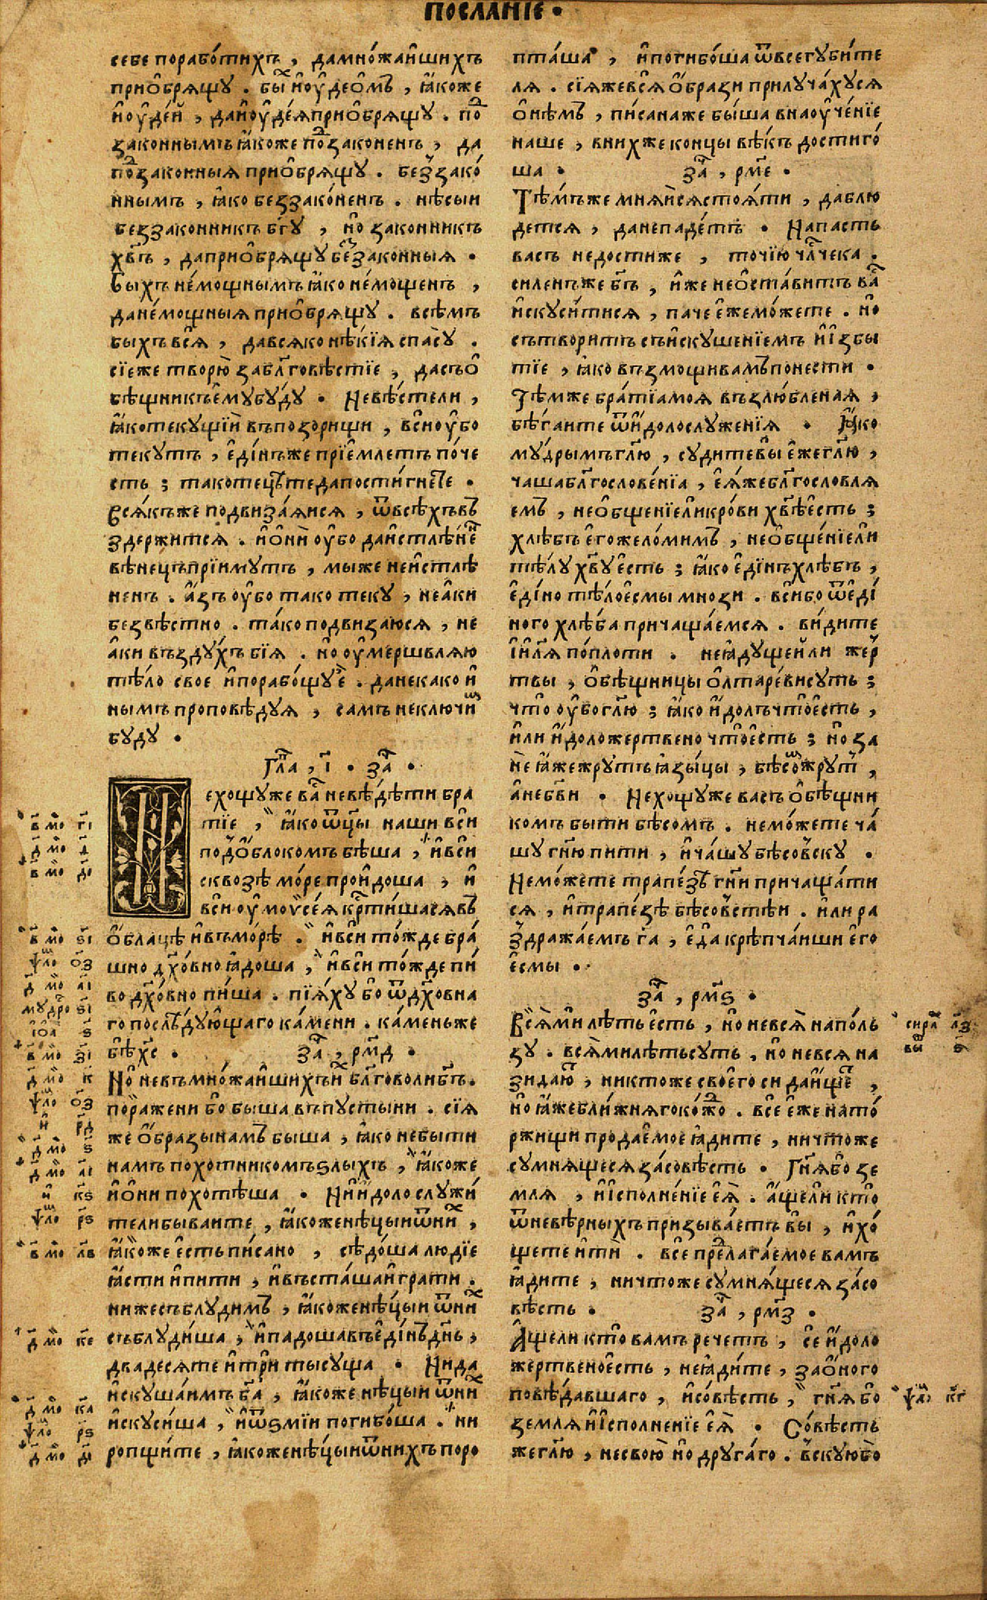 ПОСЛАНІЕ •
себе порабо́тихъ , да мно́жаишихъ
приѡбрящу . бы́х і҆ ѹ҆деѡ́мъ , ꙗ҆́коже
і҆ ѹ҆де́й , да и҆ ѹ҆де́я приѡбрящу . по
законнымъ ꙗ҆́коже по́дзаконенъ , да
по́дзаконныя приѡбрящу . без̾зако́
ннымъ , ꙗ҆́ко беззако́ненъ . не́сыи
беззаконникъ бг҃у , но̀ законникъ
хв҃ъ , да приѡбрящу бе́ззаконныя •
Быхъ не́мощнымъ ꙗ҆́ко не́мощенъ ,
да не́мощныя приѡбрящу . всѣмъ
быхъ вся̀ , да всяко нѣ́кїя спасу̀ .
сїе же творю̀ за бл҃говѣ́стїе , да съѡ
бѣщникъ е҆му̀ бу́ду • Не вѣ́сте ли ,
ꙗ҆́ко текущїи въ позорищи , вси ѹ҆́бо
текутъ , е҆ди́нъ же прїе́млетъ по́че
сть ; тако тецы́те да пости́гнете •
Всякъ же подвиза́яися , ѿ всѣ́хъ въ
здержится . и҆ ѻ҆нѝ ѹ҆бо да и҆стлѣ́нен
вѣне́цъ прїимутъ , мы же неи҆стлѣ
ненъ . а҆́зъ ѹ҆бо тако теку , не а҆ки
безвѣ́стно . та́ко подвизаюся , не
а҆ки въздухъ бїя . но̀ ѹ҆мершвляю
тѣло свое и҆ порабо́щуе . да не како и҆
нымъ проповѣ́дуя , самъ неключи́м
буду •
Гла , і҃ • за •
ехощу же ва не вѣ́дѣти бра
тїе , ꙗ҆́ко ѿцы наши вси
под ѻ҆́блокомъ бѣ́ша , и҆ вси
сквозѣ мо́ре проидо́ша , и҆
вси ѹ҆ моѵсе́я крⷭ҇тишася въ
ѻ҆́блацѣ и҆ въ морѣ̀ . и҆ вси то́жде бра́
шно дх҃о́вно ꙗ҆до́ша , и҆ вси то́жде пи́
во дх҃о́вно пи́ша . пїя́ху бо ѿ дх҃о́вна
го послѣ́дующаго ка́мени . ка́мень же
бѣ̀ хс҃ • за , рмд •
Но̀ не въ мно́жаишихъ и҆х бл҃говоли бг҃ъ .
пораже́ни бо бы́ша въ пусты́ни . сїя
же ѻ҆́бразы намъ бы́ша , ꙗ҆́ко не бы́ти
намъ похотникомъ ѕлыхъ , ꙗ҆́коже
и҆ ѻ҆нѝ похотѣша • Ни и҆́доло служи́
тели бываите , ꙗ҆́коже нѣ́цыи ѿ ни́х ,
ꙗ҆́коже є҆́сть пи́сано , сѣдо́ша лю́дїе
ꙗ҆́сти и҆ пи́ти , и҆ въста́ша и҆гра́ти .
ниже съблу́димъ , ꙗ҆́коже нѣ́цыи ѿ ни́х
съблуди́ша , и҆ падо́ша въ е҆ди́нъ дн҃ь ,
двадесяте и҆ трѝ ты́суща • Ни да
и҆скуша́имъ ха , ꙗ҆́коже нѣ́цыи ѿ ни́х
и҆скуси́ша , и҆ ѿ ѕмїи погибо́ша . ни
ро́пщите , ꙗ҆́коже нѣ́цыи ѿ нихъ поро
пташа , и҆ погибо́ша ѿ всегуби́те
ля . сїя же вся ѻ҆́брази прилуча́хуся
ѻ҆нѣ́мъ , пи́сана же бы́ша в наѹ҆че́нїе
наше , в ни́хже концы вѣ́къ достиго́
ша • за , рме •
Тѣ́мъже мня́ися стоя́ти , да блю
дется , да не паде́тъ • Напасть
васъ не дости́же , точїю чл҃чека .
силенъ же бг҃ъ , и҆́же не ѻ҆ста́витъ ва
и҆скуси́тися , паче е҆́же мо́жете . но
сътвори́тъ съ и҆скуше́нїемъ и҆ и҆збы
тїе , ꙗ҆́ко възмощи вамъ понести •
Тѣ́мже бра́тїа моя въ злю́бленая ,
бѣ́гаите ѿ и҆́долослуже́нїя • Ꙗ҆́ко
му́дрымъ гл҃ю , суди́те вы е҆́же гл҃ю ,
чаша бл҃гослове́нїа , ю҆́же бл҃гословля
емъ , не ѻ҆бще́нїе ли кро́ви хв҃ѣ є҆́сть ;
хлѣ́бъ е҆го́же ло́мимъ , не ѻ҆бще́нїе ли
тѣ́лу хв҃у є҆́сть ; ꙗ҆́ко е҆ди́нъ хлѣ́бъ ,
е҆ди́но тѣ́ло е҆смы мнози . вси́ бо ѿ е҆ди́
ного хлѣ́ба причаща́емся . ви́дите
і҆и҃ля по пло́ти . не ꙗ҆ду́щей ли жер
твы , ѻ҆бѣ́щницы ѻ҆лтаре́ви суть ;
что̀ ѹ҆́бо гл҃ю ; ꙗ҆́ко и҆́долъ что̀ є҆́сть ,
и҆ли и҆́доложертвено что̀ є҆́сть ; но̀ за
не ꙗ҆́же жрутъ ꙗ҆зы́цы , бѣсом жрут ,
а҆ не бг҃ви • Не хощу же васъ ѻ҆бѣ́щни
комъ бы́ти бѣсо́мъ . не мо́жете ча́
шу гн҃ю пи́ти , и҆ ча́шу бѣсо́вску •
Не мо́жете трапе́зѣ гн҃и причаща́ти
ся , и҆ трапе́зѣ бѣсо́встѣи . и҆ли ра
здража́емъ га , е҆да̀ крѣ́пчаиши е҆го
е҆смы •
за , рмѕ •
Вся̀ ми лѣ́ть є҆́сть , но̀ не вся̀ на по́ль
зу . вся̀ ми лѣ́ть суть , но̀ не вся̀ на
зида́ют , никтоже своего̀ си да и҆́щет ,
но̀ ꙗ҆́же бли́жняго ко́ждо . все е҆́же на то́
ржищи продае́мое ꙗ҆ди́те , ничто́же
сумня́щеся за со́вѣсть • Гн҃я бо зе
мля , и҆ и҆сполне́нїе е҆я̀ . а҆́ще ли кто
ѿ невѣ́рныхъ призыва́етъ вы , и҆ хо́
щете и҆ти́ . все предлага́емое вамъ
ꙗ҆ди́те , ничто́же сумня́щеся за со
вѣсть • за , рмз •
А҆́ще ли кто̀ вамъ рече́тъ , се и҆́доло
же́ртвено є҆́сть , не ꙗ҆ди́те , за ѻ҆́ного
повѣ́давшаго , и҆ со́вѣсть , гн҃я бо
земля̀ и҆ и҆сполне́нїе е҆я̀ • Со́вѣсть
же гл҃ю , не свою̀ но̀ друга́го . вскую бо